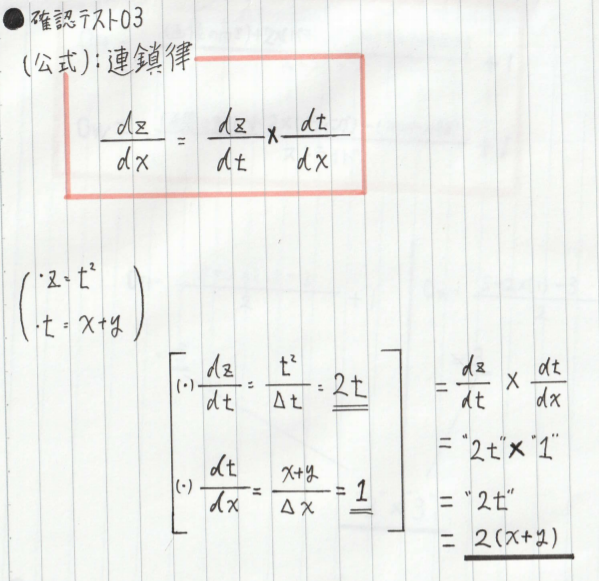 ● 確認テスト03
(公式):連鎖律
dz/dx = dz/dt × dt/dx
・z = t²
・t = x+y
(・) dz/dt = t²/Δt = 2t
(・) dt/dx = x+y/Δx = 1
= dz/dt × dt/dx
= "2t" × "1"
= "2t"
= 2(x+y)